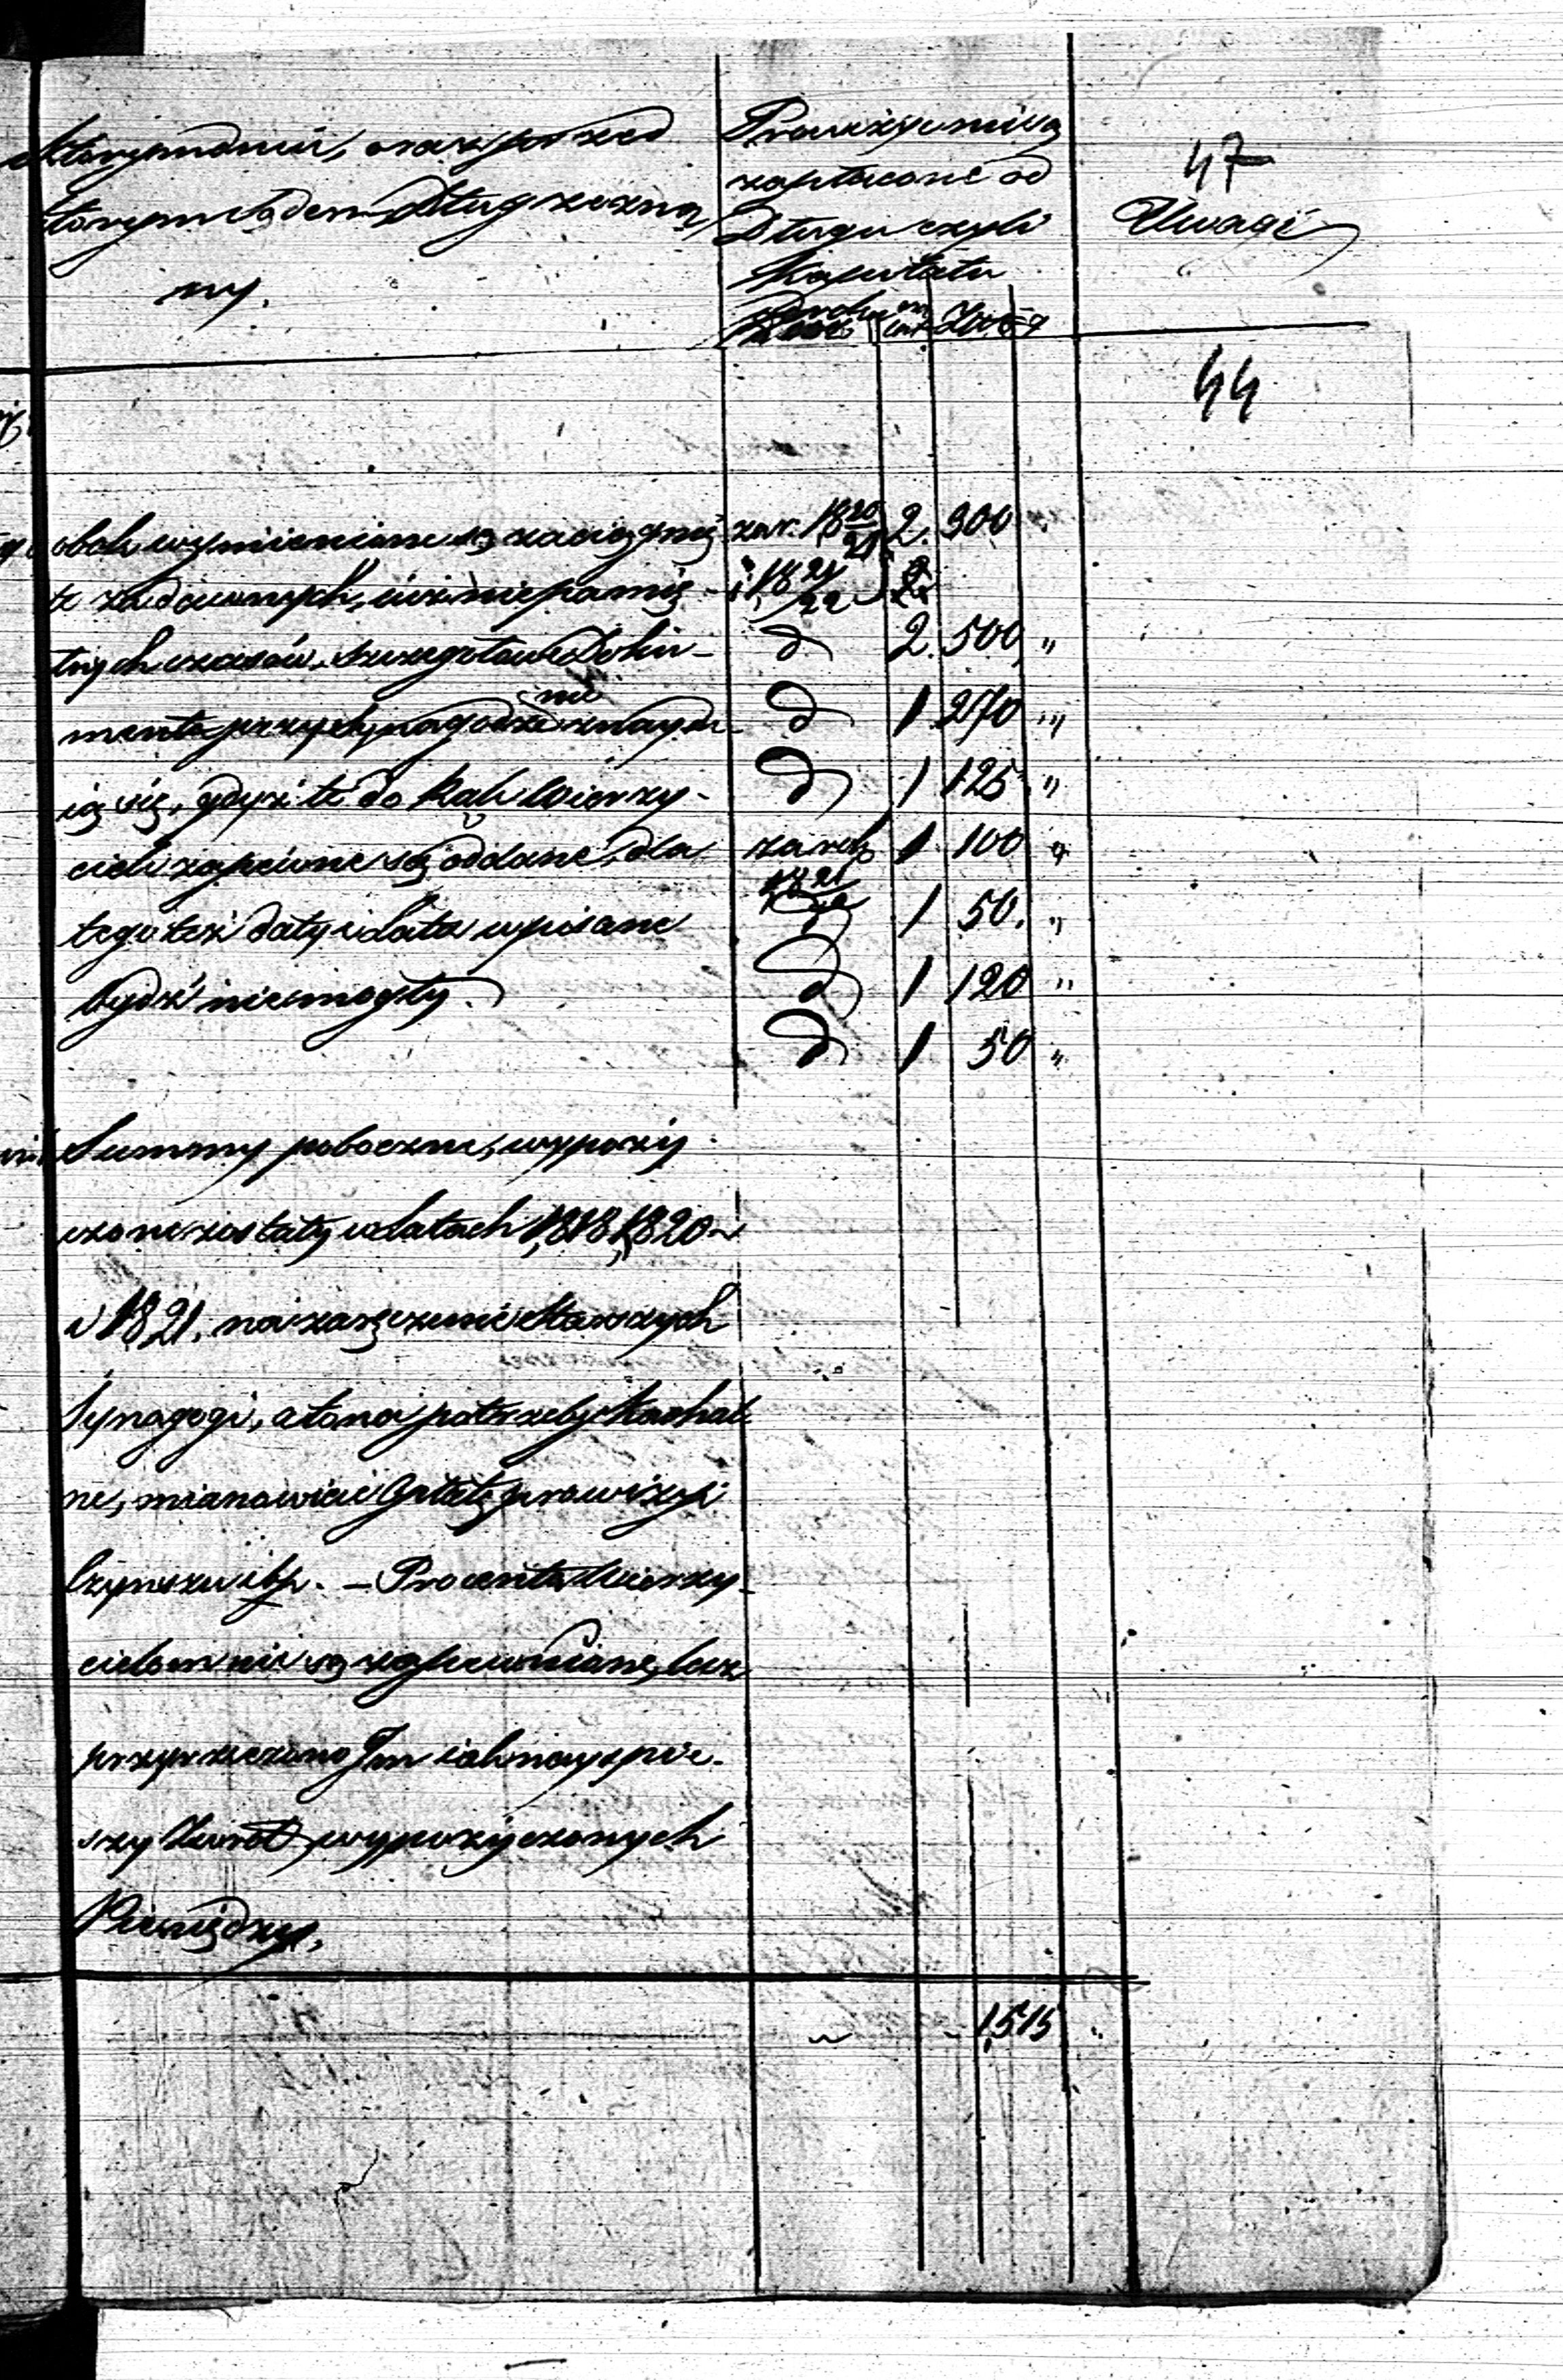 którym dniu, oraz przed
którym Sądem Dług zezna
ny.
Prowizye nie są
zapłacone od
Długu czyli
Kapitału
47
Uwagi
44
obok wymienione są zaciągnię
te z dawnych, iuż niepamię-
tnych czasów, szczegółowe Doku-
menta przy Synagodze nie znaydu-
ią się, gdyż te do Rąk Wierzy-
cieli zapewne są oddane, dla
tego też daty i lata wpisane
bydź niemogły.
za r. 18 20/21 2. 300 "
i 18 21/22
d 2. 500 "
d 1 270 "
d 1 125 "
za rok 1 100 "
18 21/22
d 1 50. "
d 1 120 "
d 1 50 "
Summy poboczne, wypoży-
czone zostały w latach 1818, 1820
i 1821. na zaręczenie Starszych
Synagogi, a to na potrzeby Kahal
ne, mianowicie Opłatę prowizyi
Czynszu itp. – Procenta Wierzy-
cielom nie są zapewniane, lecz
przyrzeczono Im iak nayspie-
szy Zwrot wypożyczonych
Pieniędzy.
1,515 "